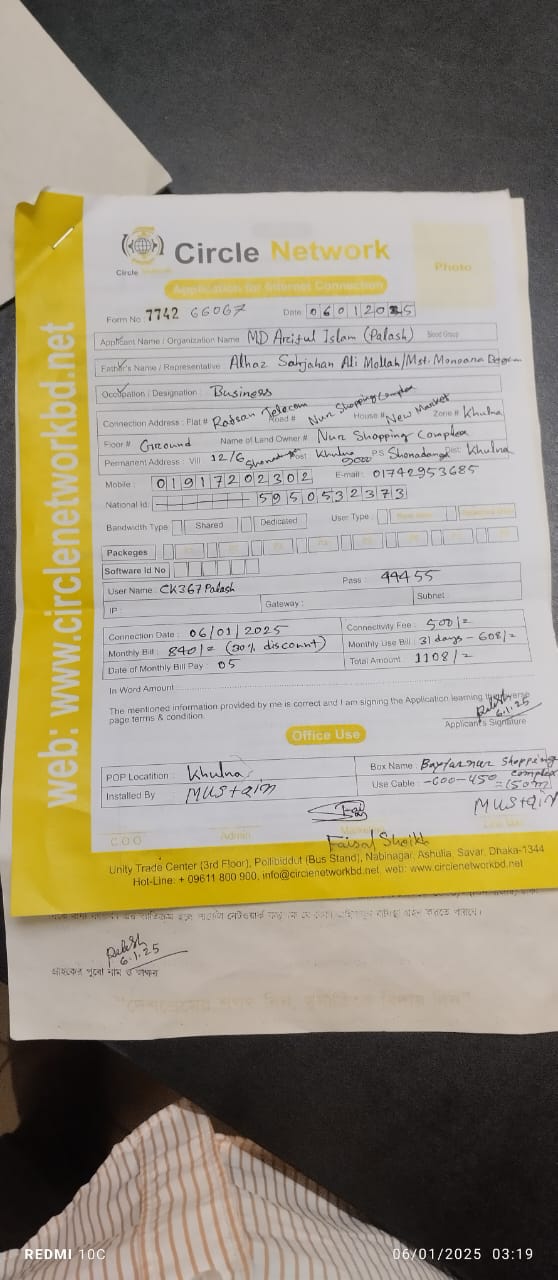 Circle Network
Circle Network
Application for Internet Connection
Photo
Form No : 7742 66067 Date : 06012025
Applicant Name / Organization Name MD Ariful Islam (Palash) Blood Group
Father's Name / Representative Alhaz Sahjahan Ali Mollah/Mst. Monoara Begum
Occupation / Designation : Business
Connection Address : Flat # Telecom Road # Nur Shopping Complex House # New Market Zone # Khulna
Floor # Ground Name of Land Owner # Nur Shopping Complex
Permanent Address : Vill 12/6 Post Khulna 9000 PS Shonadanga Dist Khulna
Mobile : 01917202302 E-mail : 01742953685
National Id: 5950532373
Bandwidth Type Shared Dedicated User Type :
Packeges
Software Id No
User Name : CK367Palash Pass : 44455
IP : Gateway : Subnet :
Connection Date : 06/01/2025 Connectivity Fee : 500/=
Monthly Bill : 840/= (30% discount) Monthly Use Bill : 31 days - 608/=
Date of Monthly Bill Pay : 05 Total Amount : 1108/=
In Word Amount
The mentioned information provided by me is correct and I am signing the Application learning the reverse
page terms & condition.
Palash
6.1.25
Applicant's Signature
Office Use
POP Locatition : Khulna Box Name : Shopping complex
Installed By : Mustain Use Cable : -600-450 =150m
Mustain
Faisal Sheikh
C.O.O Admin
Unity Trade Center (3rd Floor), Pollibiddut (Bus Stand), Nabinagar, Ashulia, Savar, Dhaka-1344
Hot-Line: + 09611 800 900, info@circlenetworkbd.net, web: www.circlenetworkbd.net
web: www.circlenetworkbd.net
Palash
6.1.25
REDMI 10C 06/01/2025 03:19